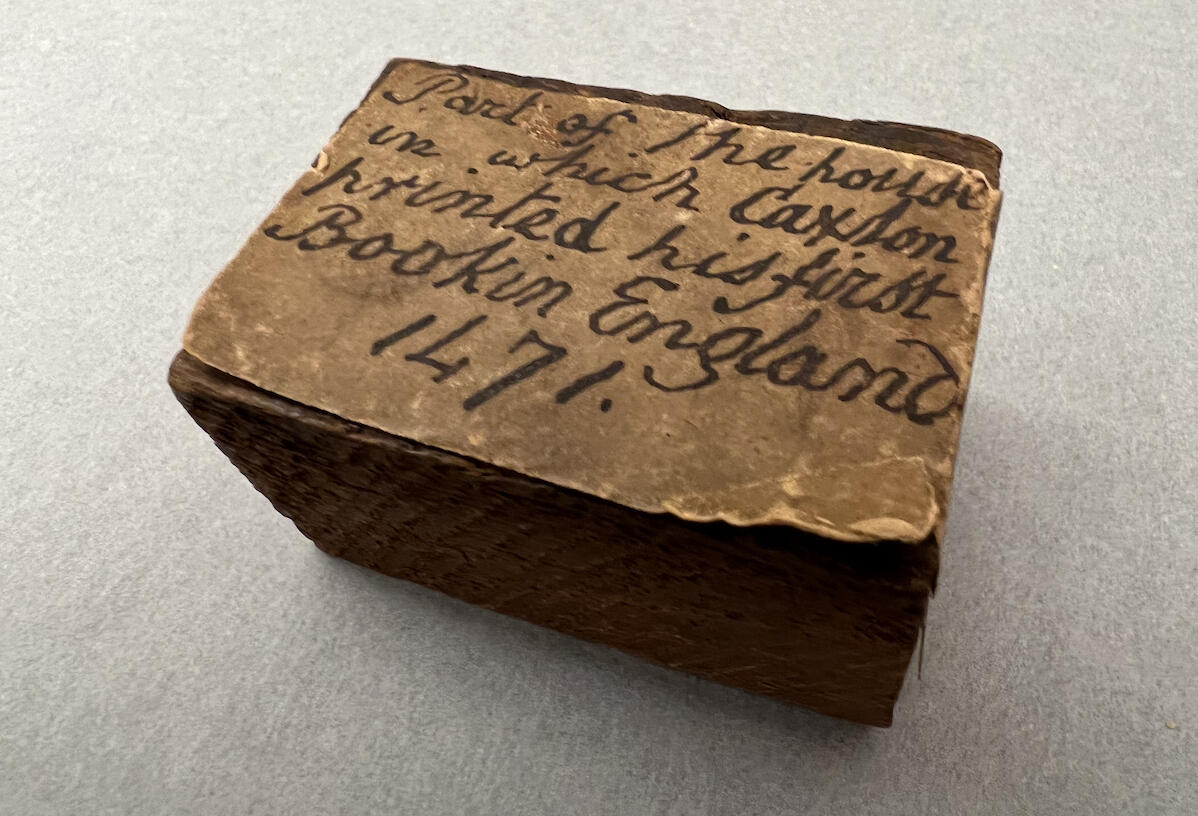 Part of the house
in which Caxton
printed his first
Book in England
1471.